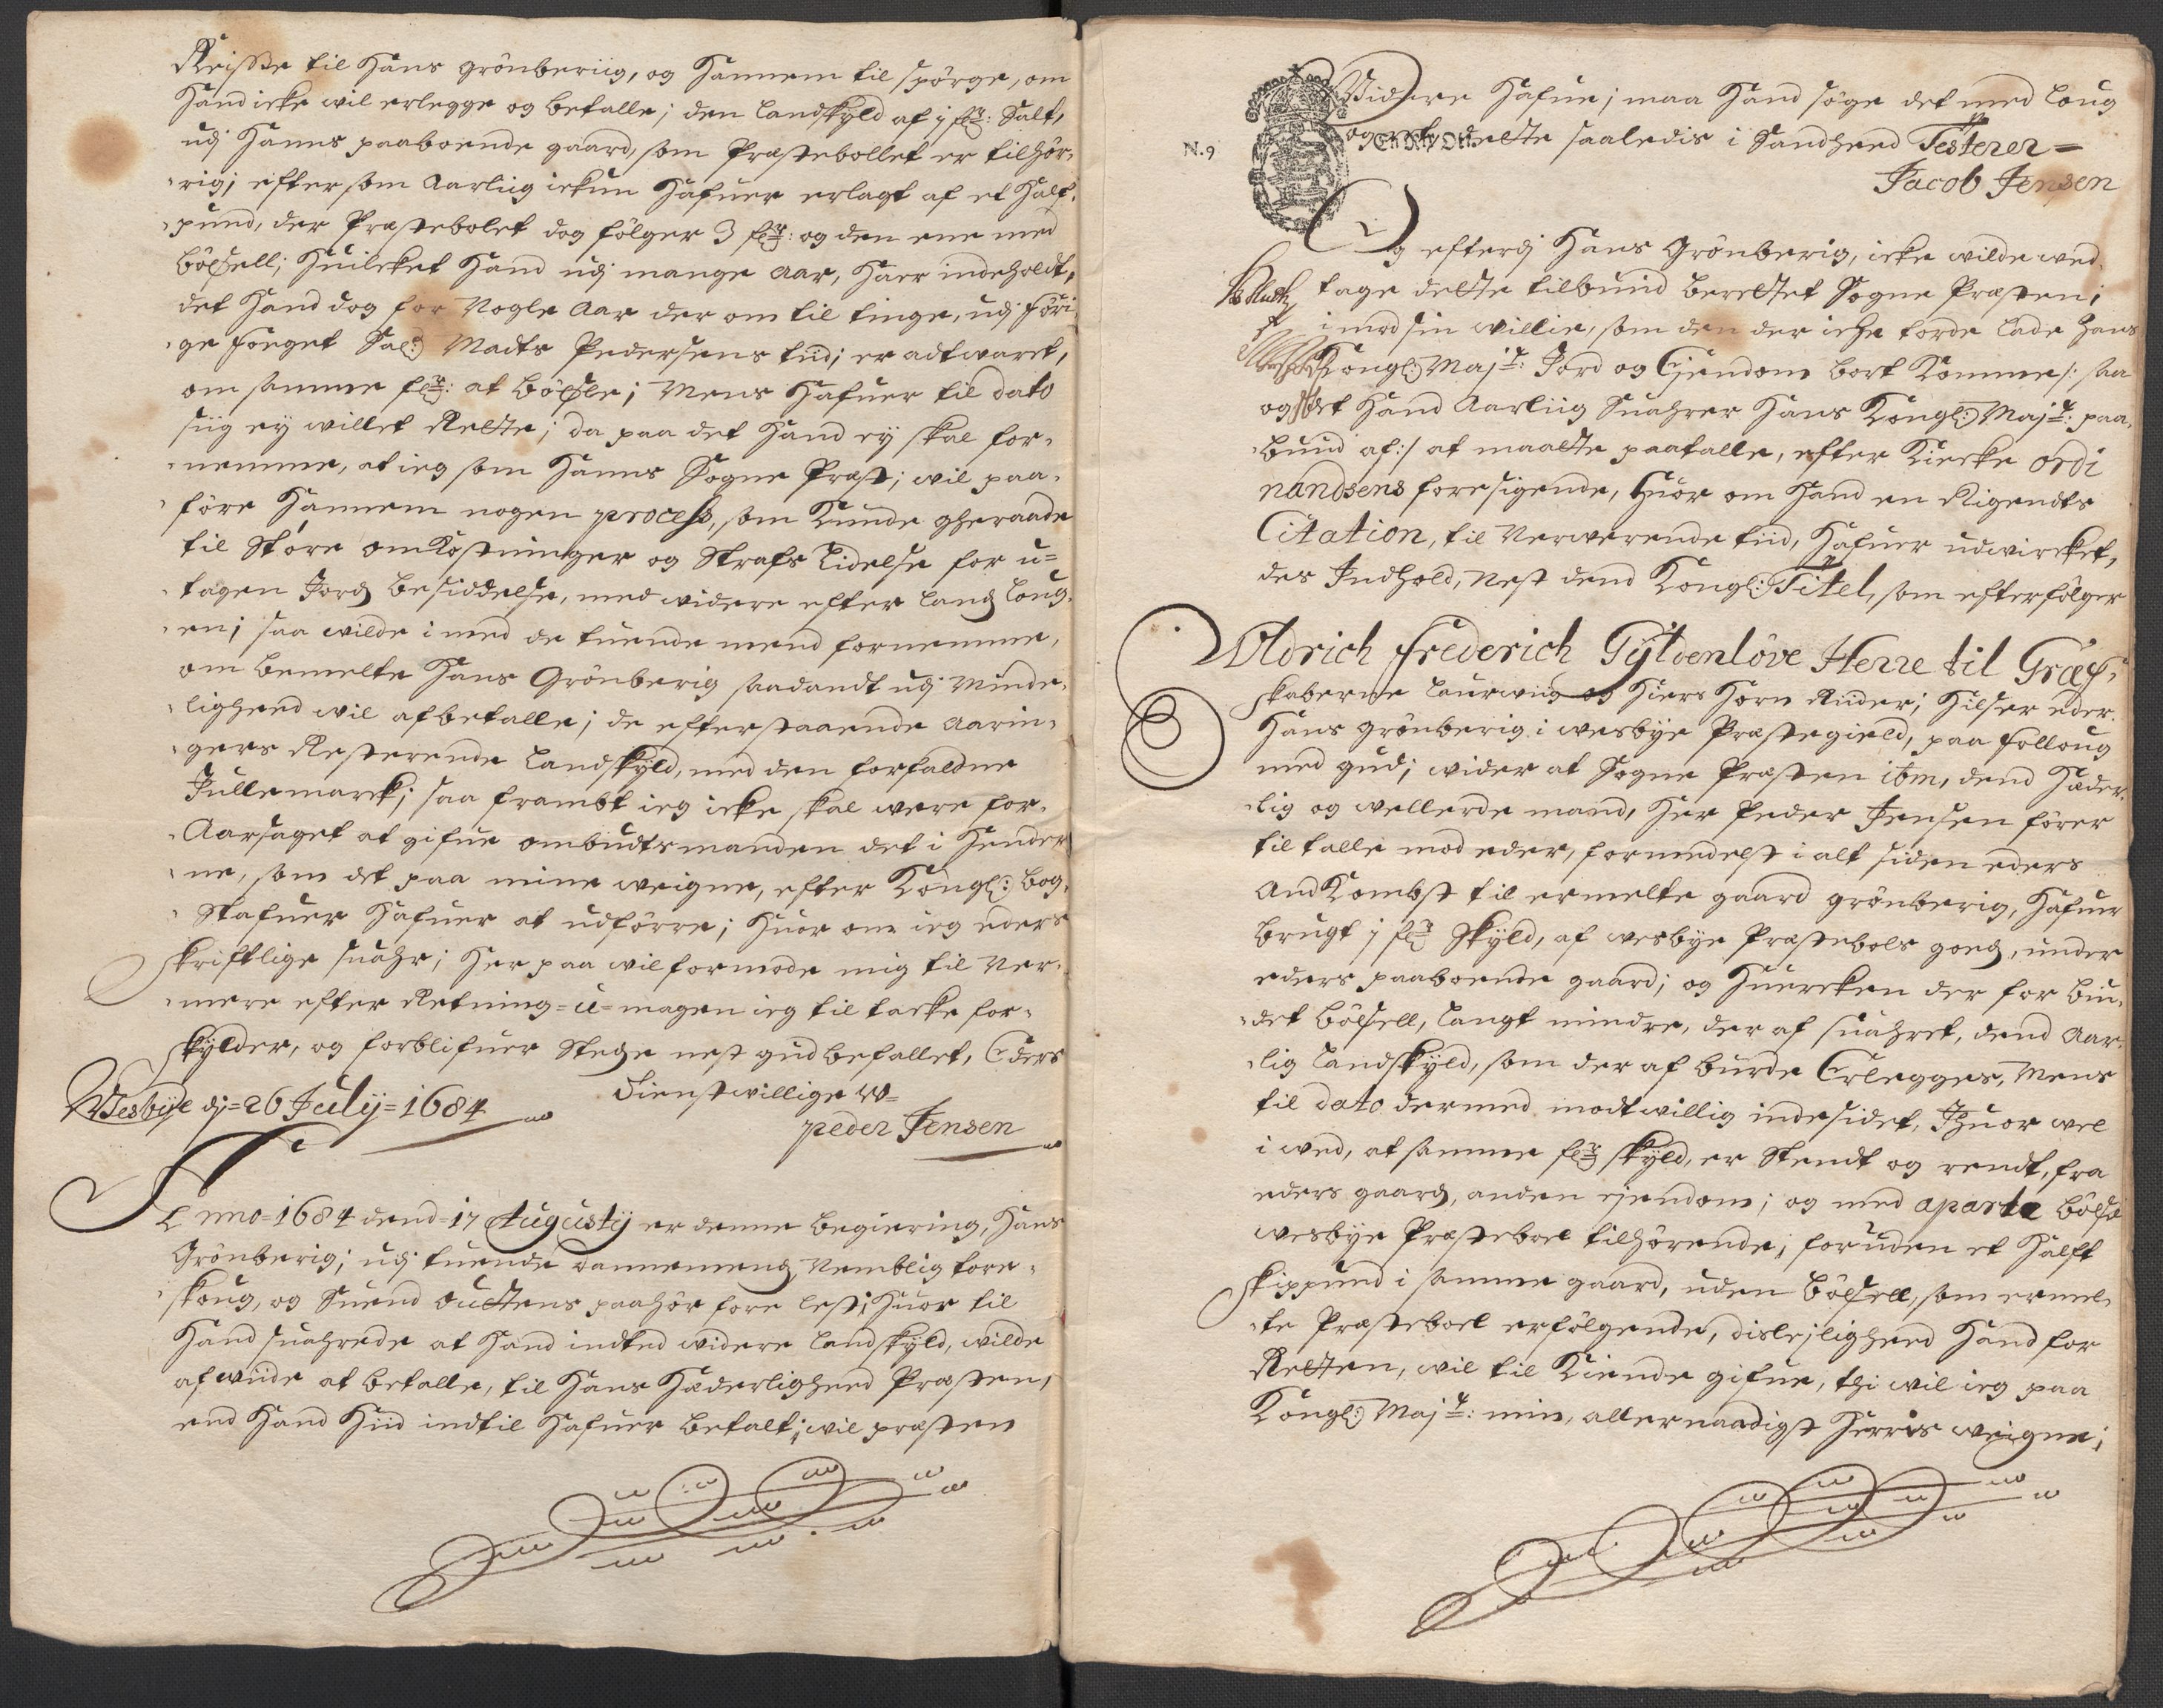 Reisse til Hans Grönberiig, og hannem til spörge, om
hand icke wil erlegge og betalle; den Landskyld af j frg: Salt,
udj hanns paaboende gaard, som Præstebollet er tilhör-
rig; eftersom Aarliig ickun hafuer erlagt af et half-
pund, der Præstebolet dog fölger 3 frg: og den ene med
böxell; huilcket hand udj mange Aar, haer indeholdt,
det hand dog for Nogle Aar der om til tinge, udj föri-
ge foeget Sal: Madts Pedersens tiid; er adtwaret,
om samme frg: at böxle; Mens hafuer til dato
siig ey willet Rette; da paa det hand ey skal for-
nemme, at ieg som hanns Sogne Præst; wil paa-
före hannem nogen process, som kunde gheraade
til Störe omkostninger og Strafs Lidelse for u-
tagen Jord besiddelse, med widere efter Land Loug-
en; saa wilde i med de tuende mend fornemme,
om bemelte Hans Grönberig saadandt udj Minde-
ligheed wil afbetalle; de efterstaaende Aarin-
gers Resterende Landskyld, med den forfaldne
Jullemarck; saa frambt ieg icke skal were for-
Aarsaget at gifue ombudtsmanden det i hender
ne, som det paa mine weigne, efter Kongl: bog-
Stafuer hafuer at udförre; huor om ieg eders
skriftlige suahr; her paa wil formode mig til Ner-
mere efter Retning = u = magen ieg til tacke for-
skylder, og forblifuer Stedze nest gud befallet, Eders
Wesbye dj = 26 Julij = 1684 Tienstwillige W=
peder Jensen
Anno = 1684 dend = 17 Augustij er denne begiering, Hans
Grönberig; udj tuende dannemend, Nemblig Tore-
skoug, og Suend Outtens paahör fore lest; huor til
hand suahrede at hand indted widere Landskyld, wilde
af wiide at betalle, til hans hæderligheed Præsten,
end hand hiid indtil hafuer betalt; wil præsten
N. 9
Widere hafue; maa hand söge det med Loug
og Rette saaledis i Sandheed Testerer =
Jacob Jensen
Og efterdj Hans Grönberig, icke wilde wed-
tage dette tilbuud berettet Sogne Præsten;
imod sin willie, som den der iche torde lade hans
Kongl: Majt: Jord og Ejendom bort komme /: saa
og det hand Aarliig Suahrer Hans Kongl: Majt: paa-
buud af :/ at maatte paatalle, efter Kircke ordi
nandsens foresigende, huor om hand en Rigendts
Citation, til Nerwerende tiid, hafuer udwircket,
des Indhold, nest dend Kongl: Titel, som efterfölger
Uldrich Frederich Gyldenlöve Herre til Græf-
skaberne Laurwiig og Hiers horn Rider; Hilser eder
Hans Grönberig i wesbye Præstegield, paa Folloug
med gud; wider at Sogne Præsten ibm, dend Hæder-
lig og wellerde mand, Her Peder Jensen förer
til talle mod eder, formedelst i alt siden eders
And Kombst til ermelte gaard Grönberig, hafuer
brugt j frg skyld, af wesbye Præstebols goed, under
eders paaboende gaard; og huercken der for buu-
det böxell, langt mindre, der af suahret, dend Aar-
lig Landskyld, som der af burde Erlegges, Mens
til dato dermed modtwillig indesidet, Ihuor wel
i wed, at samme frg skyld, er Stendt og rendt, fra
eders gaard, anden ejendom; og med aparte böxel
wesbye Præsteboel tilhörende; foruden et halft
skippund i samme gaard, uden böxell, som ermel-
te Præsteboel erfölgende, dislejligheed hand for
Retten, wil til Kiende gifue, thi wil ieg paa
Kongl: Majt: min, allernaadigst Herris weigne;